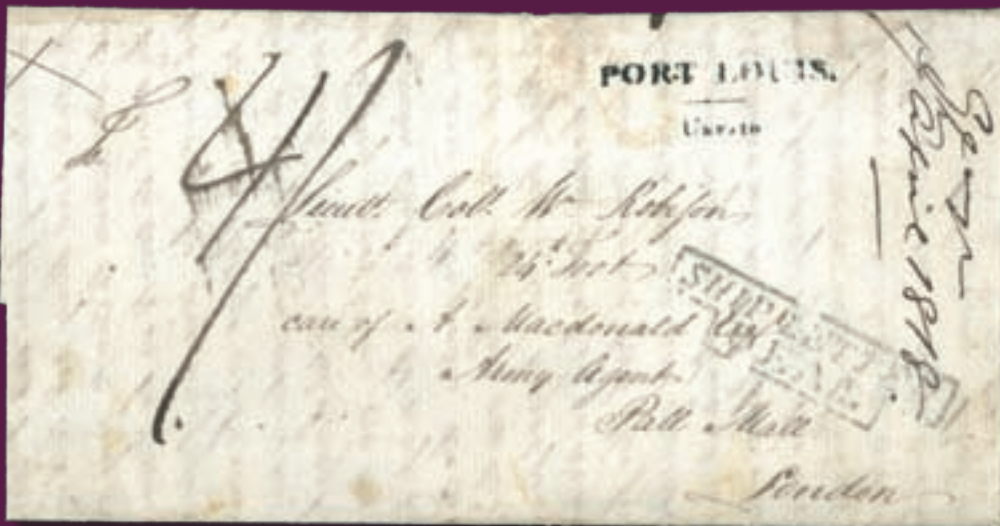 PORT LOUIS.
4/
Lieutt. Coll. Wm Robison
24t Foot
care of A. Macdonald Esqr
Army Agent
Pall Mall
London
SHIP LETTER
April 1818